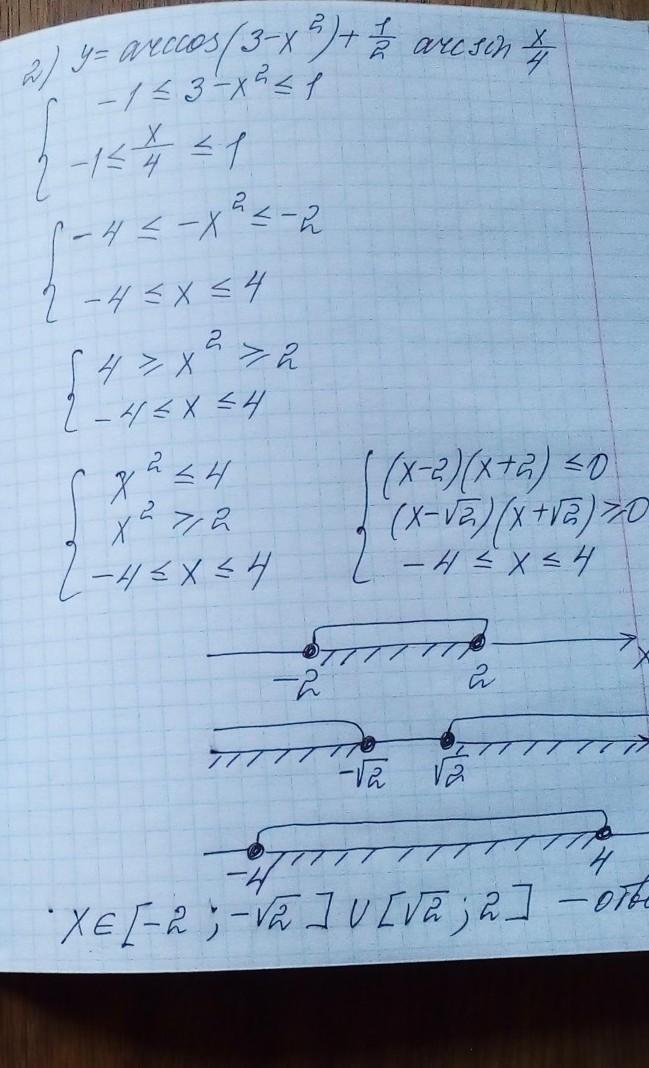 2) y = arccos(3-x²) + 1/2 arcsin x/4
{ -1 ≤ 3-x² ≤ 1
-1 ≤ x/4 ≤ 1
{ -4 ≤ -x² ≤ -2
-4 ≤ x ≤ 4
{ 4 ≥ x² ≥ 2
-4 ≤ x ≤ 4
{ x² ≤ 4
x² ≥ 2
-4 ≤ x ≤ 4
{ (x-2)(x+2) ≤ 0
(x-√2)(x+√2) ≥ 0
-4 ≤ x ≤ 4
-2 2 x
-√2 √2
-4 4
x ∈ [-2 ; -√2] ∪ [√2 ; 2] –